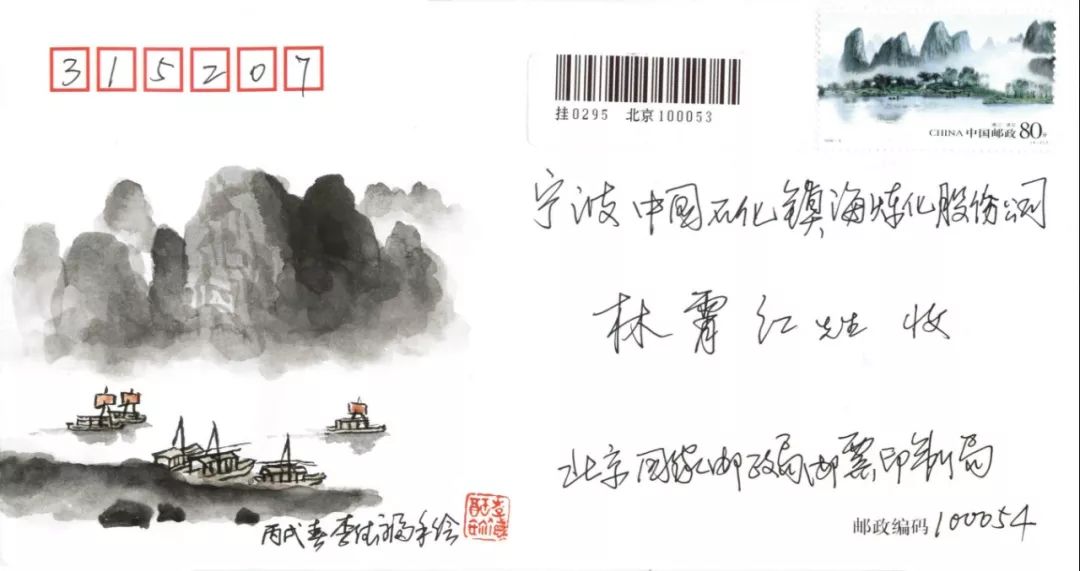 315207
挂0295 北京100053
CHINA 中国邮政 80分
宁波 中国石化镇海炼化股份公司
林霄红 先生 收
北京国家邮政局邮票印制局
邮政编码 100054
丙戌春 李德福手绘